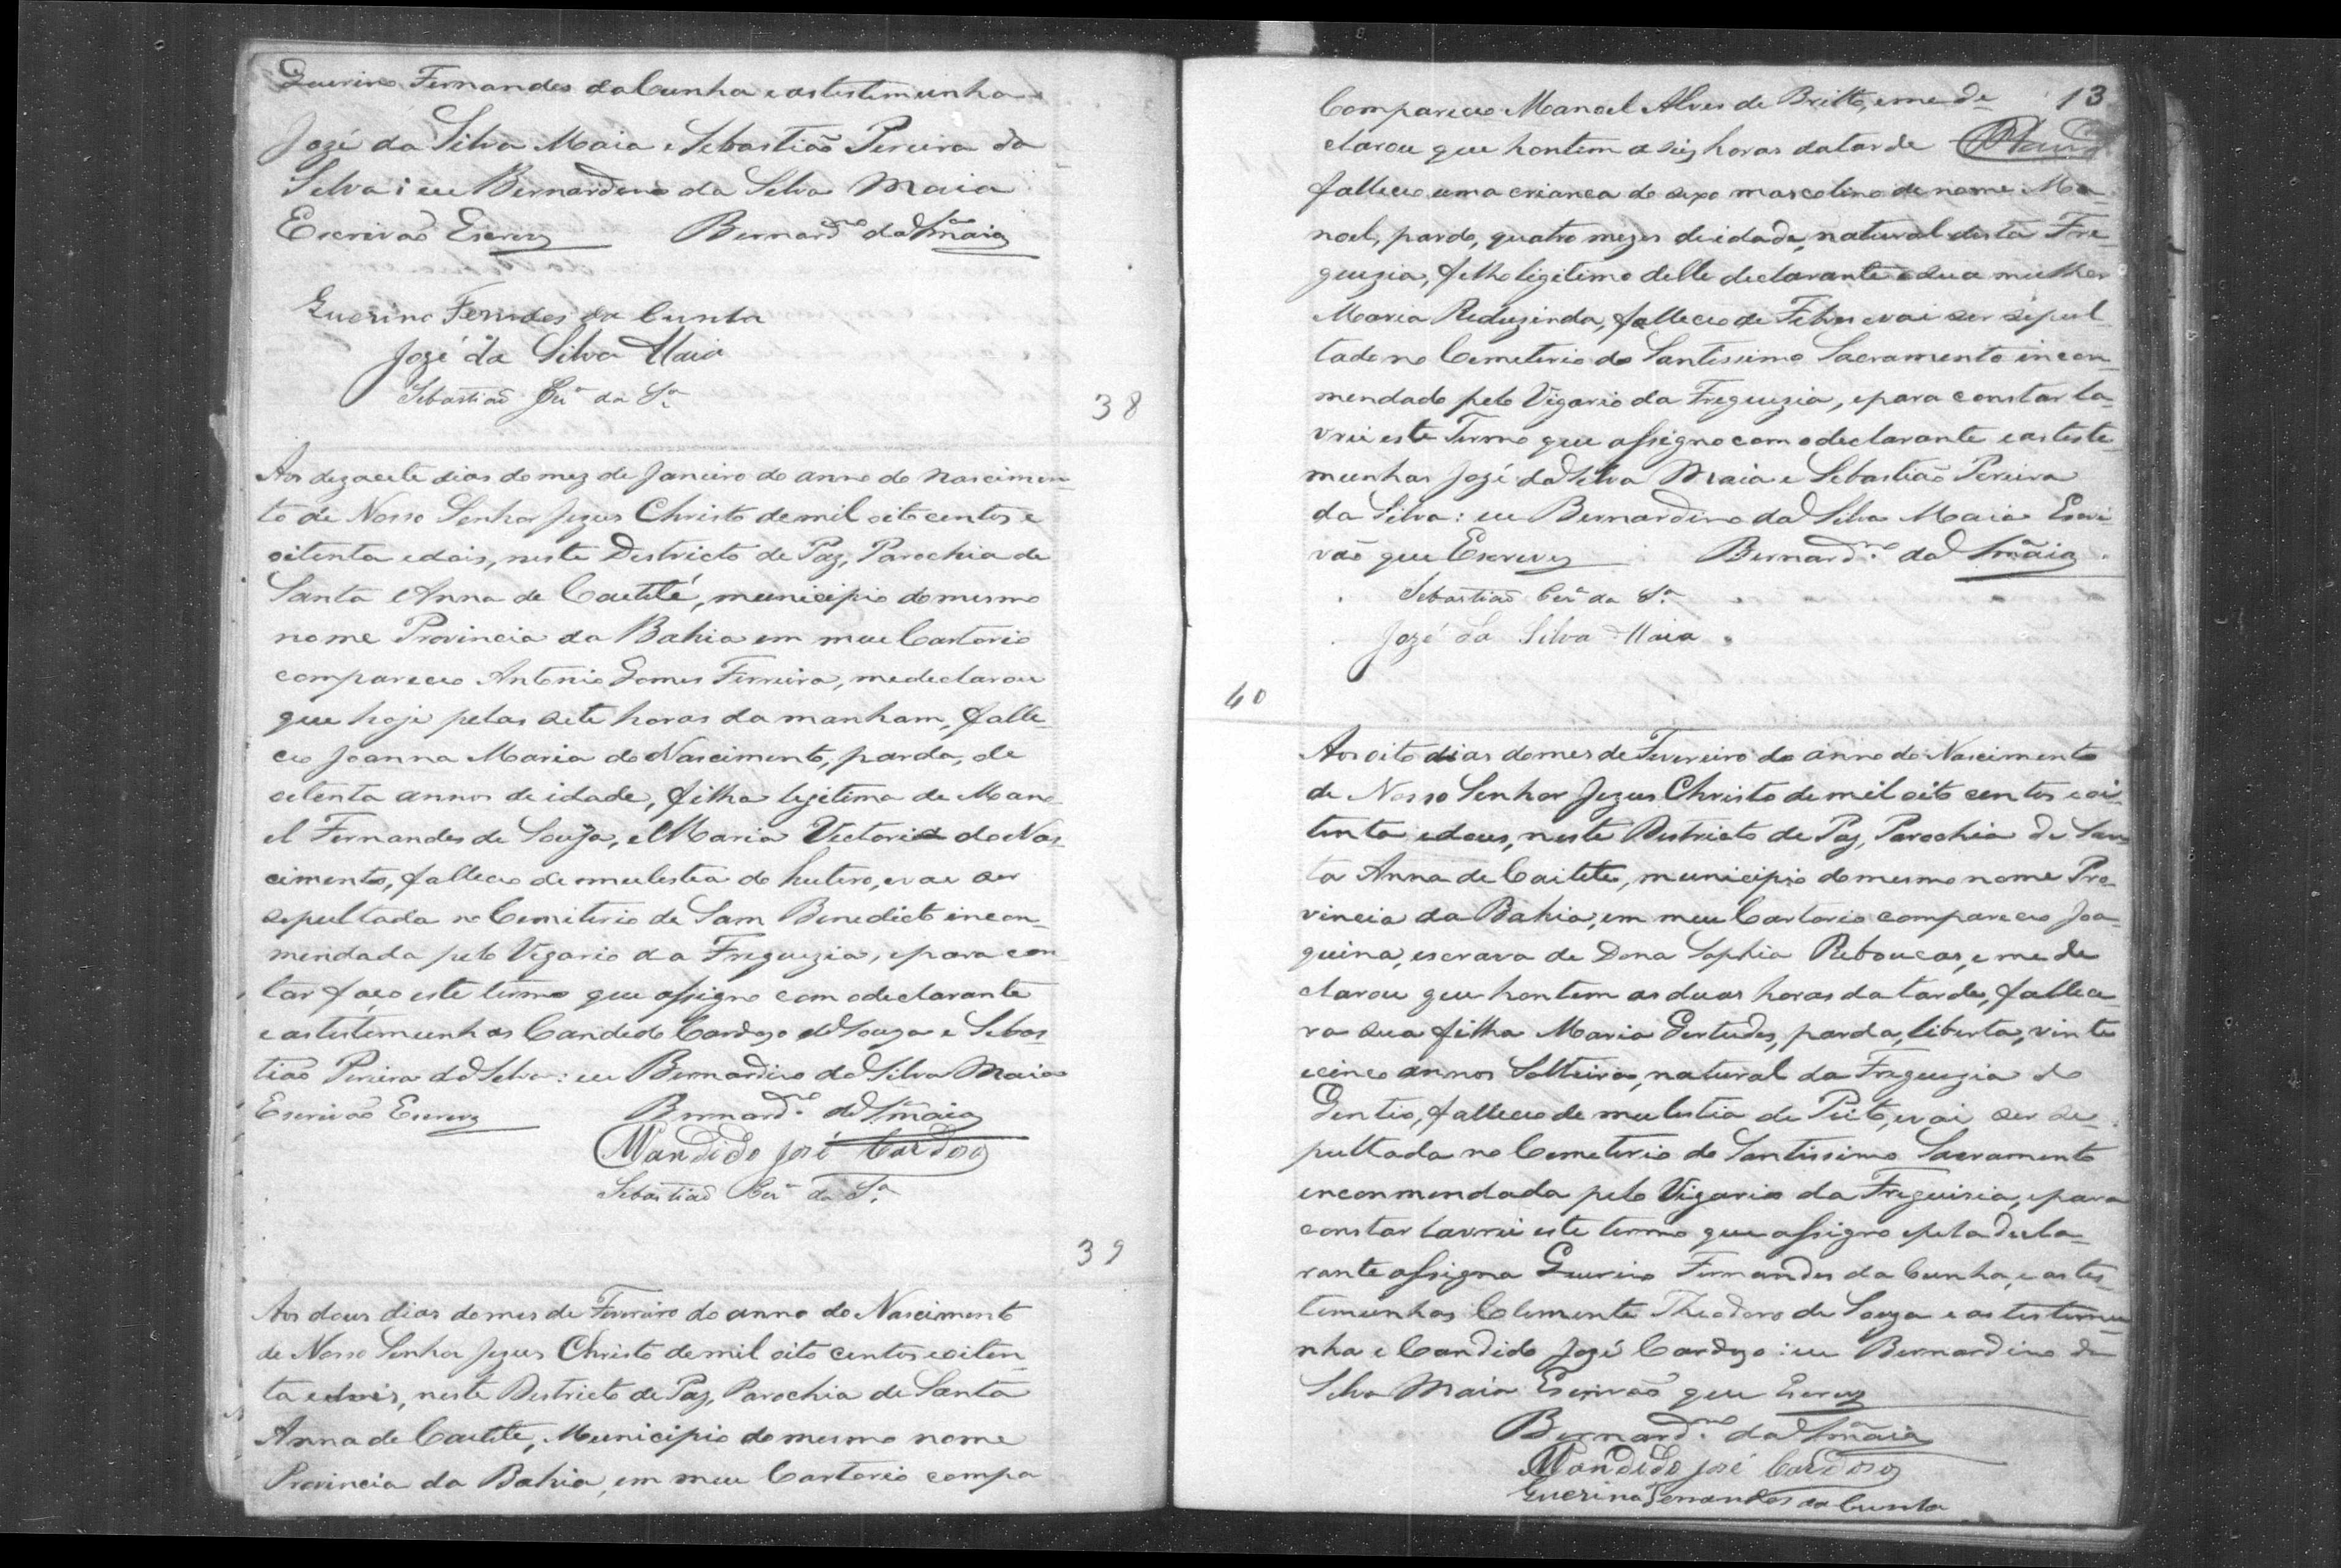 Guerino Fernandes da Cunha e as testemunhas
Jozé da Silva Maia e Sebastião Pereira da
Silva: eu Bernardino da Silva Maia
Escrivaõ Escrevy Bernard.no da S.a Maia
Guerino Fernndes da Cunha
Jozé da Silva Maia
Sebastiaõ Per.a da S.a
38
Aos dezacete dias do mez de Janeiro do anno do nascimen-
to de Nosso Senhor Jezus Christo de mil oito centos e
oitenta e dois, neste Destricto de Paz, Parochia de
Santa Anna de Caetité, municipio do mesmo
nome Provincia da Bahia em meu Cartorio
compareceo Antonio Gomes Ferreira, me declarou
que hoje pelas sete horas da manham, falle-
ceo Joanna Maria do Nascimento, parda, de
oitenta annos de idade, filha legitima de Mano-
el Fernandes de Souza, e Maria Victoria do Nas-
cimento, falleceo de mulestia do hutero, e vae ser
sepultada no Cemiterio de Sam Benedicto incon-
mendada pelo Vigario da Freguezia, e para con-
tar faço este termo que assigno com o declarante
e as testemunhas Candido Cardozo de Souza e Sebas-
tiaõ Pereira da Silva: eu Bernardino da Silva Maia
Escrivaõ Escrevy Bernard.no da S.a Maia
Candido José Cardoso
Sebastiaõ Per.a da S.a
39
Aos dous dias do mes de Fevereiro do anno do Nascimento
de Nosso Senhor Jezus Christo de mil oito centos e oiten-
ta e dois, neste Destricto de Paz, Parochia de Santa
Anna de Caetite, Municipio do mesmo nome
Provincia da Bahia, em meu Cartorio compa
13
Compareceo Manoel Alves de Britto, e me de-
clarou que hontem a seis horas da tarde
falleceo uma crianca do sexo mascolino de nome Ma-
noel, pardo, quatro mezes de idade, natural desta Fre-
guezia, filho legitimo delle declarante e sua mulher
Maria Reduzinda, falleceo de Febres e vai ser sepul-
tado no Cemeterio do Santissimo Sacramento incon-
mendado pelo Vigario da Freguezia, e para constar la-
vrei este Termo que assigno com o declarante e as teste-
munhas Jozé da Silva Maia e Sebastião Pereira
da Silva: eu Bernardino da Silva Maia Escri-
vaõ que Escrevy Bernard.no da S.a Maia
Sebastiaõ Per.a da S.a
Jozé da Silva Maia
40
Aos oito dias do mes de Fevereiro do anno do Nascimento
de Nosso Senhor Jezus Christo de mil oito centos e oi-
tenta e dous, neste Destricto de Paz, Parochia de San-
ta Anna de Caitete, municipio do mesmo nome Pro-
vincia da Bahia, em meu Cartorio compareceo Joa-
quina, escrava de Dona Sophia Reboucas, e me de
clarou que hontem as duas horas da tarde, fallece-
ra sua filha Maria Gertudes, parda, liberta, vinte
e cinco annos Solteira, natural da Freguezia do
Gentio, falleceo de mulestia de Peito, e vai ser se-
pultada no Cemeterio do Santissimo Sacramento
enconmendada pelo Vigario da Freguisia, e para
constar lavrei este termo que assigno e pela decla-
rante assigna Guerino Fernandes da Cunha, e as tes-
temunhas Clemente Theodoro de Souza e as testemu-
nha e Candido Jozé Cardozo: eu Bernardino da
Silva Maia Escrivaõ que Escrevy
Bernard.no da S.a Maia
Candido José Cardoso
Guerino Fernandes da Cunha